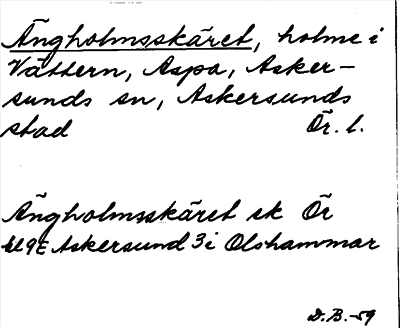 Ängholmsskäret, holme i
Vättern, Aspa, Asker-
sunds sn, Askersunds
stad Ör. l.
Ängholmsskäret ek Ör
bl 9E Askersund 3 i Olshammar
D.B.-59